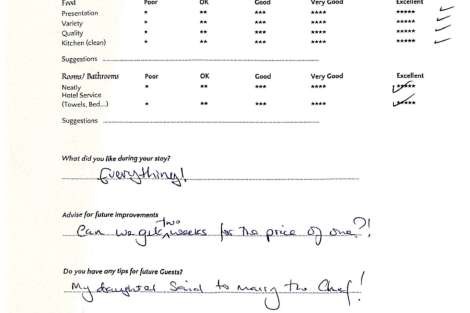 Food Poor OK Good Very Good Excellent
Presentation * ** *** **** *****
Variety * ** *** **** *****
Quality * ** *** **** *****
Kitchen (clean) * ** *** **** *****
Suggestions
Rooms/ Bathrooms Poor OK Good Very Good Excellent
Neatly * ** *** **** *****
Hotel Service
(Towels, Bed...) * ** *** **** *****
Suggestions
What did you like during your stay?
Everything!
Advise for future improvements
Can we get two weeks for the price of one?!
Do you have any tips for future Guests?
My daughter said to marry the Chef!